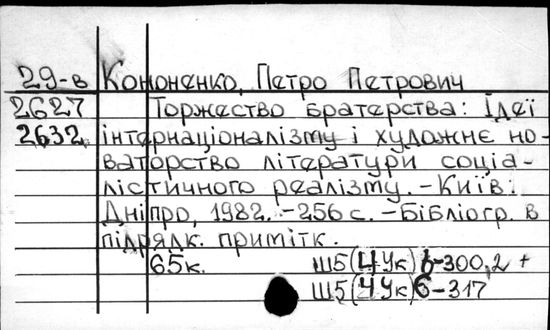 29-в Кононенко, Петро Петрович
2627 Торжество братерства: Ідеї
2632 інтернаціоналізму і художнє но-
ваторство літератури соціа-
лістичного реалізму. - Київ:
Дніпро, 1982. - 256 с. - Бібліогр. в
підрядк. примітк.
65к. Ш5(4Ук)6-300,2 +
Ш5(4Ук)6-317